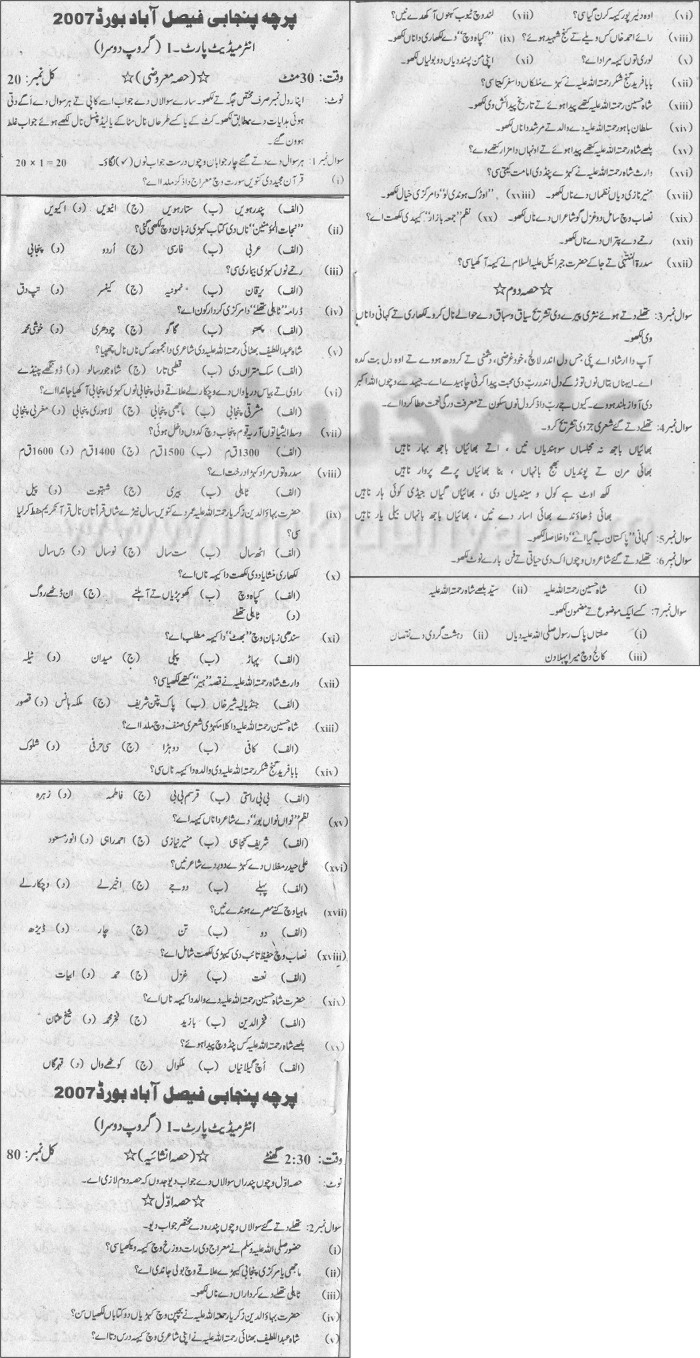 پرچہ پنجابی فیصل آباد بورڈ 2007
انٹرمیڈیٹ پارٹ-I (گروپ دوسرا)
وقت: 30 منٹ ☆(حصہ معروضی)☆ کل نمبر: 20
نوٹ: اپنا رول نمبر صرف مختص جگہ تے لکھو۔ سارے سوالاں دے جواب ایسے کاپی تے ہر سوال دے اگے دتی
ہوئی ہدایات دے مطابق لکھو۔ کٹ کے یا کسے طرحاں نال مٹا کے یا لیڈ پنسل نال لکھے ہوئے جواب غلط
ہوون گے۔
سوال نمبر 1: ہر سوال دے دتے گئے چار جواباں وچوں درست جواب نوں (✓) لگاؤ۔ 20 × 1 = 20
(i) قرآن مجید دی کنویں سورت وچ معراج دا ذکر ملدا اے؟
(الف) پندرھویں (ب) ستارھویں (ج) انیویں (د) اکیویں
(ii) "نجات المؤمنین" ناں دی کتاب کہڑی زبان وچ لکھی گئی؟
(الف) عربی (ب) فارسی (ج) اُردو (د) پنجابی
(iii) رحمے نوں کہڑی بیماری سی؟
(الف) یرقان (ب) نمونیہ (ج) کینسر (د) تپ دق
(iv) ڈرامہ "ٹاہلی تھلے" دا مرکزی کردار کون اے؟
(الف) پھتو (ب) گاگو (ج) چودھری (د) خوشی محمد
(v) شاہ عبداللطیف بھٹائی رحمۃ اللہ علیہ دی شاعری دا مجموعہ کس ناں نال چھپیا؟
(الف) سک متراں دی (ب) قطبی تارا (ج) شاہ جو رسالو (د) ڈونگھے پینڈے
(vi) راوی تے بیاس دریاواں دے وچکارلے علاقے ولی پنجابی نوں کہڑی پنجابی آکھیا جاندا اے؟
(الف) مشرقی پنجابی (ب) ماجھی پنجابی (ج) لاہوری پنجابی (د) مغربی پنجابی
(vii) وسط ایشیا توں آریہ قوم پنجاب وچ کدوں داخل ہوئی؟
(الف) 1300 ق م (ب) 1500 ق م (ج) 1400 ق م (د) 1600 ق م
(viii) سدرہ توں مراد کہڑا درخت اے؟
(الف) ٹاہلی (ب) بیری (ج) شہتوت (د) پپل
(ix) حضرت بہاؤالدین زکریا رحمۃ اللہ علیہ عمر دے کنویں سال نیڑے ستاں قرأتاں نال قرآن کریم حفظ کر لیا
سی؟
(الف) اٹھ سال (ب) ست سال (ج) نو سال (د) دس سال
(x) لکھاری منشا یاد دی لکھت دا کیہہ ناں اے؟
(الف) کپاہ وچ (ب) کھوپڑیاں تے آہلنے (ج) ان ڈٹھے روگ
(د) ٹاہلی تھلے
(xi) سندھی زبان وچ "بھٹ" دا کیہہ مطلب اے؟
(الف) پہاڑ (ب) پیلی (ج) میدان (د) ٹیلہ
(xii) وارث شاہ رحمۃ اللہ علیہ نے قصہ "ہیر" کتھے لکھیا سی؟
(الف) جنڈیالہ شیر خاں (ب) پاک پتن شریف (ج) ملکہ ہانس (د) قصور
(xiii) شاہ حسین رحمۃ اللہ علیہ دا کلام کہڑی شعری صنف وچ ملدا اے؟
(الف) کافی (ب) دوہڑا (ج) سی حرفی (د) شلوک
(xiv) بابا فرید گنج شکر رحمۃ اللہ علیہ دی والدہ دا کیہہ ناں سی؟
(الف) بی بی راستی (ب) قرسم بی بی (ج) فاطمہ (د) زہرہ
(xv) نظم "نواں نواں بور" دے شاعر دا ناں کیہہ اے؟
(الف) شریف کنجاہی (ب) منیر نیازی (ج) احمد راہی (د) انور مسعود
(xvi) علی حیدر مغلاں دے کہڑے دور دے شاعر نیں؟
(الف) پہلے (ب) دوجے (ج) اخیرلے (د) وچکارلے
(xvii) ماہیا وچ کنے مصرعے ہوندے نیں؟
(الف) دو (ب) تن (ج) چار (د) ڈیڑھ
(xviii) نصاب وچ حفیظ تائب دی کہڑی لکھت شامل اے؟
(الف) نعت (ب) غزل (ج) حمد (د) ابیات
(xix) حضرت شاہ حسین رحمۃ اللہ علیہ دے والد دا کیہہ ناں اے؟
(الف) فخر الدین (ب) بازید (ج) فخر محمد (د) شیخ عثمان
(xx) بلھے شاہ رحمۃ اللہ علیہ کس پنڈ وچ پیدا ہوئے؟
(الف) اُچ گیلانیاں (ب) ملکوال (ج) کوٹھے وال (د) قہرگاں
پرچہ پنجابی فیصل آباد بورڈ 2007
انٹرمیڈیٹ پارٹ-I (گروپ دوسرا)
وقت: 2:30 گھنٹے ☆(حصہ انشائیہ)☆ کل نمبر: 80
نوٹ: حصہ اوّل وچوں پندراں سوالاں دے جواب دیو جدوں کہ حصہ دوم لازمی اے۔
☆حصہ اوّل☆
سوال نمبر 2: تھلے دتے گئے سوالاں وچوں پندرہ دے مختصر جواب دیو۔
(i) حضور صلی اللہ علیہ وسلم نے معراج دی رات دوزخ وچ کیہہ ویکھیا سی؟
(ii) ماجھی یا مرکزی پنجابی کہڑے علاقے وچ بولی جاندی اے؟
(iii) ٹاہلی تھلے دے کرداراں دے ناں لکھو۔
(iv) حضرت بہاؤالدین زکریا رحمۃ اللہ علیہ نے بچپن وچ کہڑیاں دو کتاباں لکھیاں سن؟
(v) شاہ عبداللطیف بھٹائی رحمۃ اللہ علیہ نے اپنی شاعری وچ کیہہ درس دتا اے؟
(vi) اوہ دلیر پور کیہہ کرن گیا سی؟ (vii) لند وچ ٹیوب کہنوں آکھدے نیں؟
(viii) رائے احمد خاں کس ویلے تے کتھے شہید ہوئے؟ (ix) "کپاہ وچ" دے لکھاری دا ناں لکھو۔
(x) لوری توں کیہہ مراد اے؟ (xi) اپنی من پسند دیاں دو بولیاں لکھو۔
(xii) بابا فرید گنج شکر رحمۃ اللہ علیہ نے کہڑے ملکاں دا سفر کیتا سی؟
(xiii) شاہ حسین رحمۃ اللہ علیہ کتھے پیدا ہوئے تے تاریخ پیدائش وی لکھو۔
(xiv) سلطان باہو رحمۃ اللہ علیہ دے والد تے مرشد دا ناں لکھو۔
(xv) بلھے شاہ رحمۃ اللہ علیہ کتھے پیدا ہوئے تے اونہاں دا مزار کتھے وے؟
(xvi) وارث شاہ رحمۃ اللہ علیہ نے کہڑے پنڈ دی امامت کیتی سی؟
(xvii) منیر نیازی دیاں نظماں دے ناں لکھو۔ (xviii) "اوڑک ہوندی لو" دا مرکزی خیال لکھو۔
(xix) نصاب وچ شامل دو غزل گو شاعراں دے ناں لکھو۔ (xx) نظم "جمعہ بازار" کیہدی لکھت اے؟
(xxi) رحمے دے پتراں دے ناں لکھو۔
(xxii) سدرۃ المنتہٰی تے جا کے حضرت جبرائیل علیہ السلام نے کیہہ آکھیا سی؟
☆حصہ دوم☆
سوال نمبر 3: تھلے دتے ہوئے نثری پیرے دی تشریح سیاق و سباق دے حوالے نال کرو۔ لکھاری تے کہانی دا ناں
وی لکھو۔
آپ دا ارشاد اے پئی جس دل اندر لالچ، خود غرضی، دشمنی تے کرودھ ہووے تے اوہ دل بت کدہ
اے۔ ایہناں بتاں نوں توڑ کے دل اندر ربّ دی محبت پیدا کرنی چاہیدی اے۔ جیہدے وچوں اللہ اکبر
دی آواز بلند ہووے۔ کیوں جے ربّ دا ذکر دل نوں سکون تے معرفت ورگی نعمت عطا کردا اے۔
سوال نمبر 4: تھلے دتے گئے شعری جزو دی تشریح کرو۔
بھائیاں باجھ نہ مجلساں سوہندیاں نیں، اتے بھائیاں باجھ بہار ناہیں
بھائی مرن تے پوندیاں بھج بانہاں، بنا بھائیاں پرھے پروار ناہیں
لکھ اوٹ ہے کول وسیندیاں دی، بھائیاں گیاں جیڈی کوئی ہار ناہیں
بھائی ڈھاؤندے بھائی اسار دے نیں، بھائیاں باجھ بانہاں بیلی یار ناہیں
سوال نمبر 5: کہانی "پاکستان بن گیا اے" دا خلاصہ لکھو۔
سوال نمبر 6: تھلے دتے گئے شاعروں وچوں اک دی حیاتی تے فن بارے نوٹ لکھو۔
(i) شاہ حسین رحمۃ اللہ علیہ (ii) سیّد بلھے شاہ رحمۃ اللہ علیہ
سوال نمبر 7: کسے ایک موضوع تے مضمون لکھو۔
(i) صفتاں پاک رسول صلی اللہ علیہ دیاں (ii) دہشت گردی دے نقصان
(iii) کالج وچ میرا پہلا دن